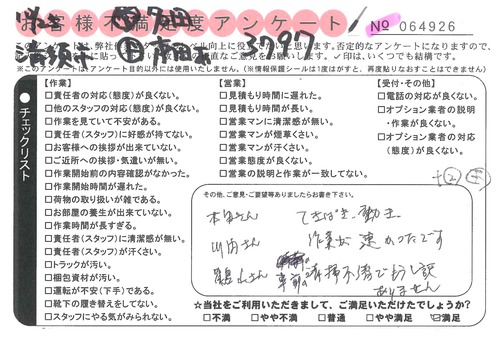 お客様不満足度アンケート
№ 064926
3797
このアンケートは、弊社作業
ベル向上に役
てたいと思います。否定的なアンケートになりますので、
直なご意見をお願いします。✓印は、いくつでも結構です。
※このアンケートは、アンケート目的以外には使用いたしません。(※情報保護シールは1度はがすと、再度貼りなおすことはできません)
チェックリスト
【作業】
□責任者の対応(態度)が良くない。
□他のスタッフの対応(態度)が良くない。
□作業を見ていて不安がある。
□責任者(スタッフ)に好感が持てない。
□お客様への挨拶が出来ていない。
□ご近所への挨拶・気遣いが無い。
□作業開始前の内容確認がなかった。
□作業開始時間が遅れた。
□荷物の取り扱いが雑である。
□お部屋の養生が出来ていない。
□作業時間が長すぎる。
□責任者(スタッフ)に清潔感が無い。
□責任者(スタッフ)が汗くさい。
□トラックが汚い。
□梱包資材が汚い。
□運転が不安(下手)である。
□靴下の履き替えをしてない。
□スタッフにやる気がみられない。
【営業】
□見積もり時間に遅れた。
□見積もり時間が長い。
□営業マンに清潔感が無い。
□営業マンが煙草くさい。
□営業マンが汗くさい。
□営業態度が良くない。
□営業の説明と作業が一致してない。
【受付・その他】
□電話の対応が良くない。
□オプション業者の説明
・作業が良くない。
□オプション業者の対応
(態度)が良くない。
その他、ご意見・ご要望等ありましたらお書き下さい。
さん てきぱき、動き
川内さん 作業が速かったです
さん 事前の清掃不備で申し訳
ありません
☆当社をご利用いただきまして、ご満足いただけたでしょうか?
□不満 □やや不満 □普通 □やや満足 ☑満足